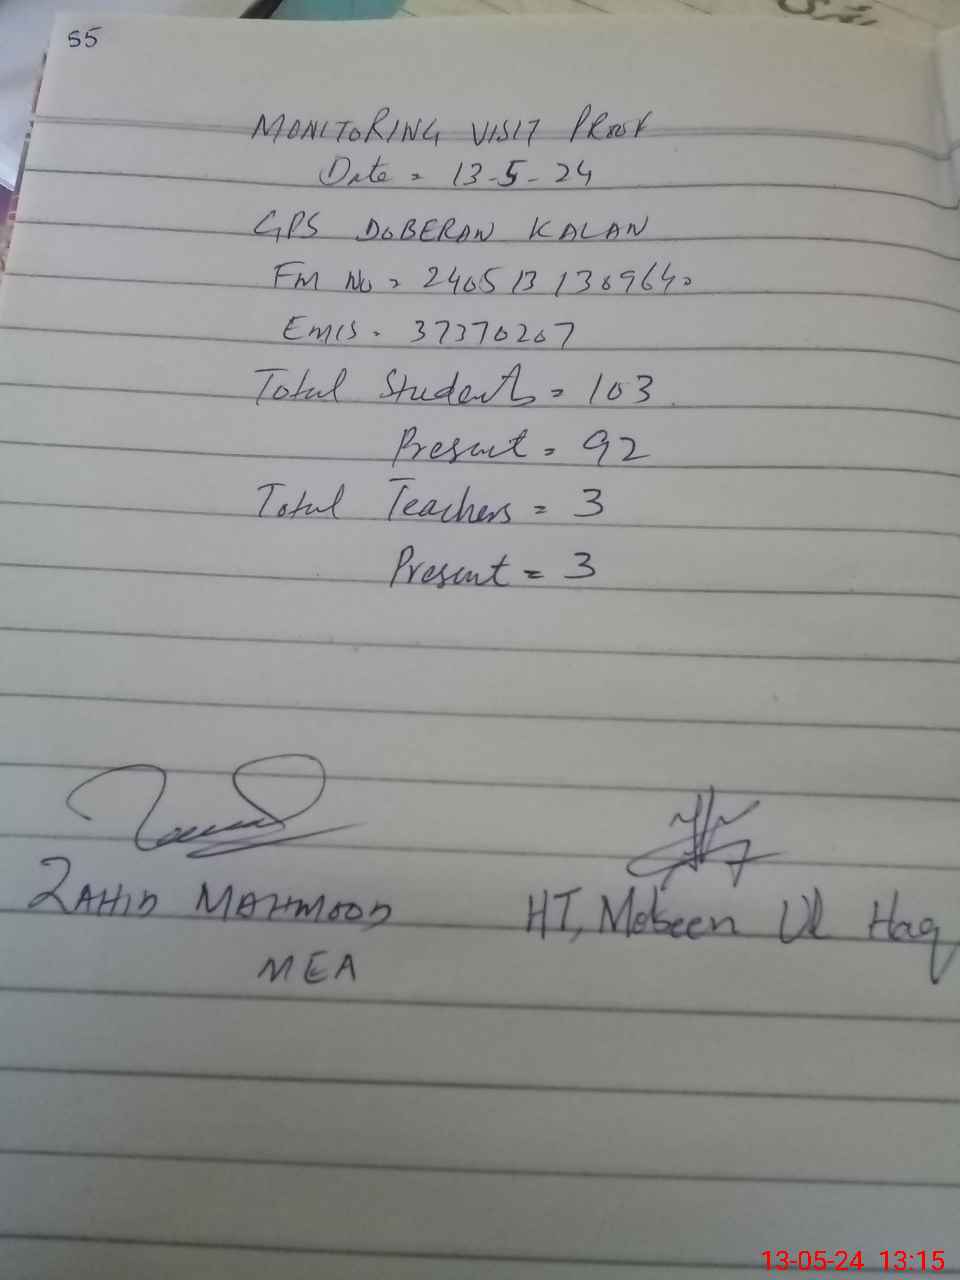 55
MONITORING VISIT PROOF
Date = 13-5-24
GPS DOBERAN KALAN
FM No = 2405131309640
EMIS = 37370207
Total Students = 103
Present = 92
Total Teachers = 3
Present = 3
ZAHID MAHMOOD HT, Mobeen Ul Haq
MEA
13-05-24 13:15